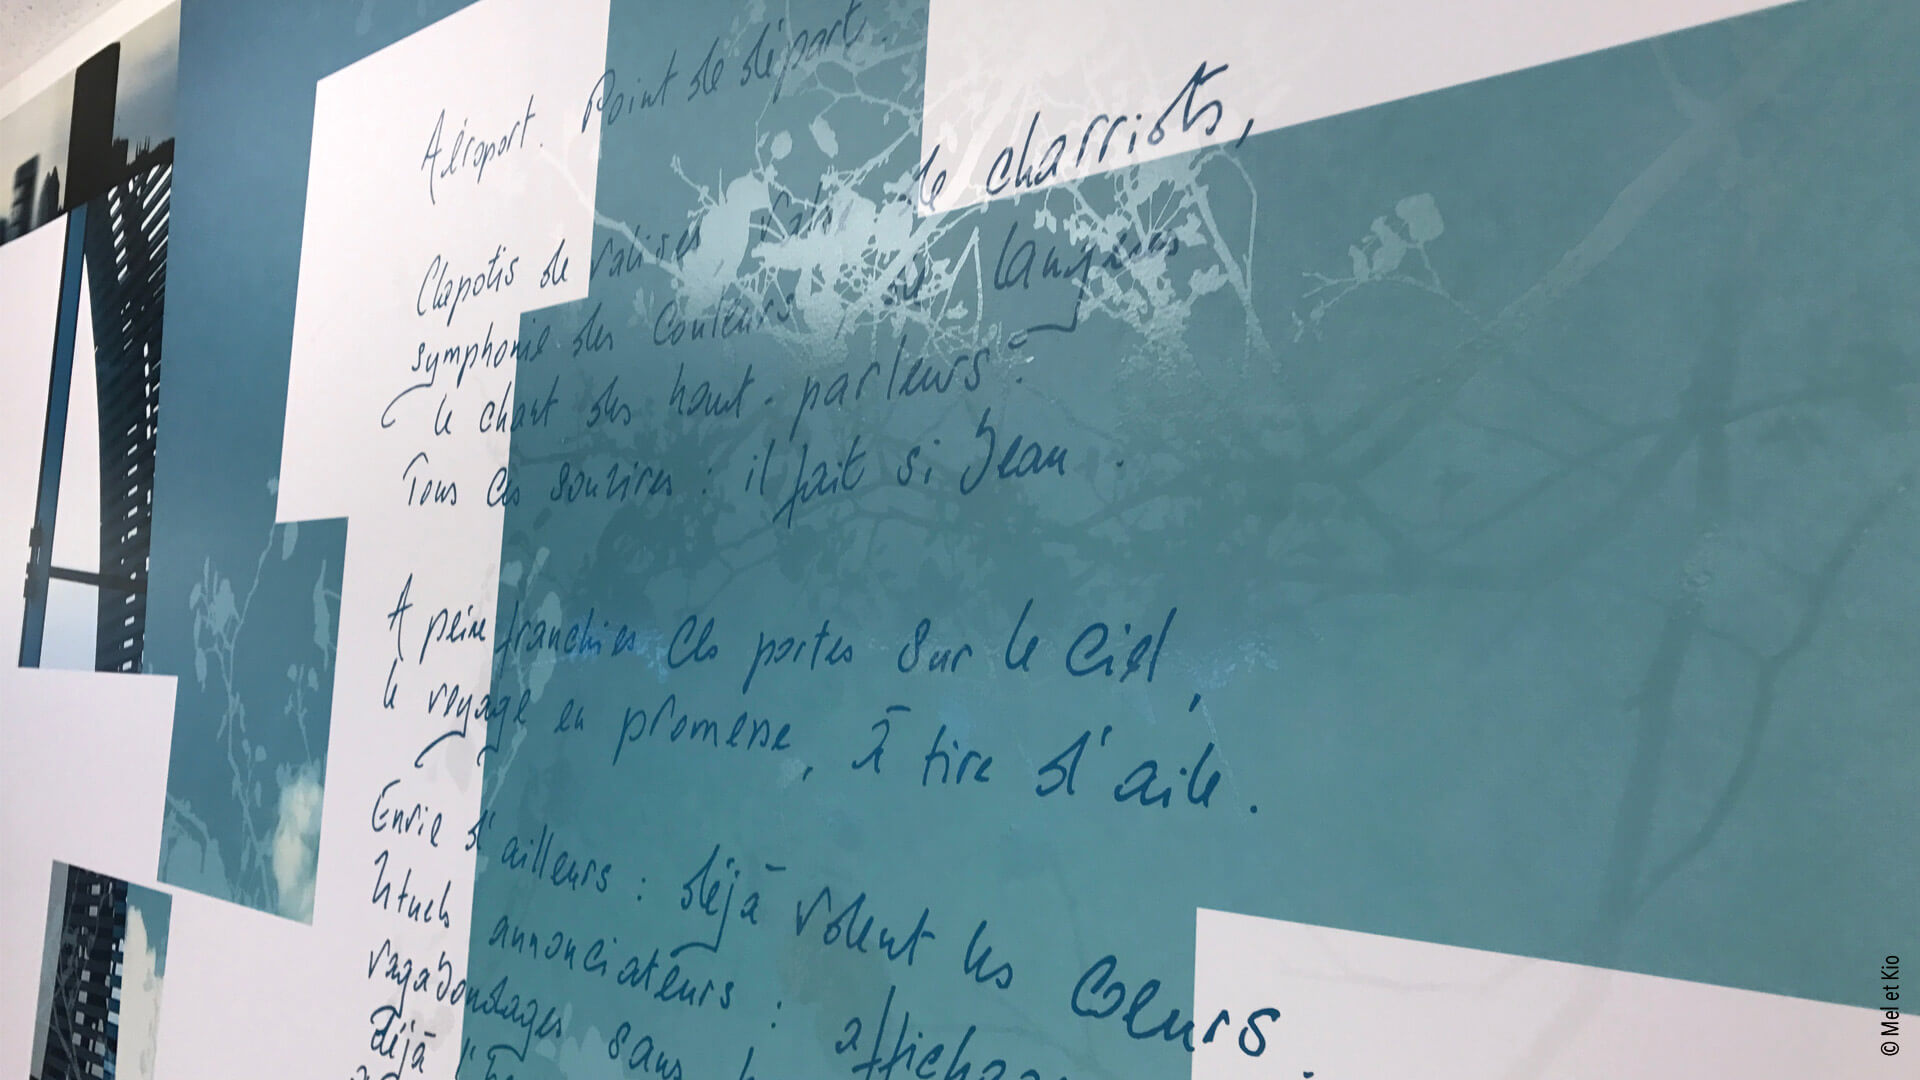 Aéroport. Point de départ.
Clapotis de valises, de charriots,
symphonie des couleurs, de langues
le chant des haut-parleurs.
Tous ces sourires : il fait si beau.
A peine franchies les portes sur le ciel,
le voyage en promesse, à tire d'aile.
Envie d'ailleurs : déjà volent les coeurs.
Rituels annonciateurs :
vagabondages sans
Déjà
© Mel et Kio